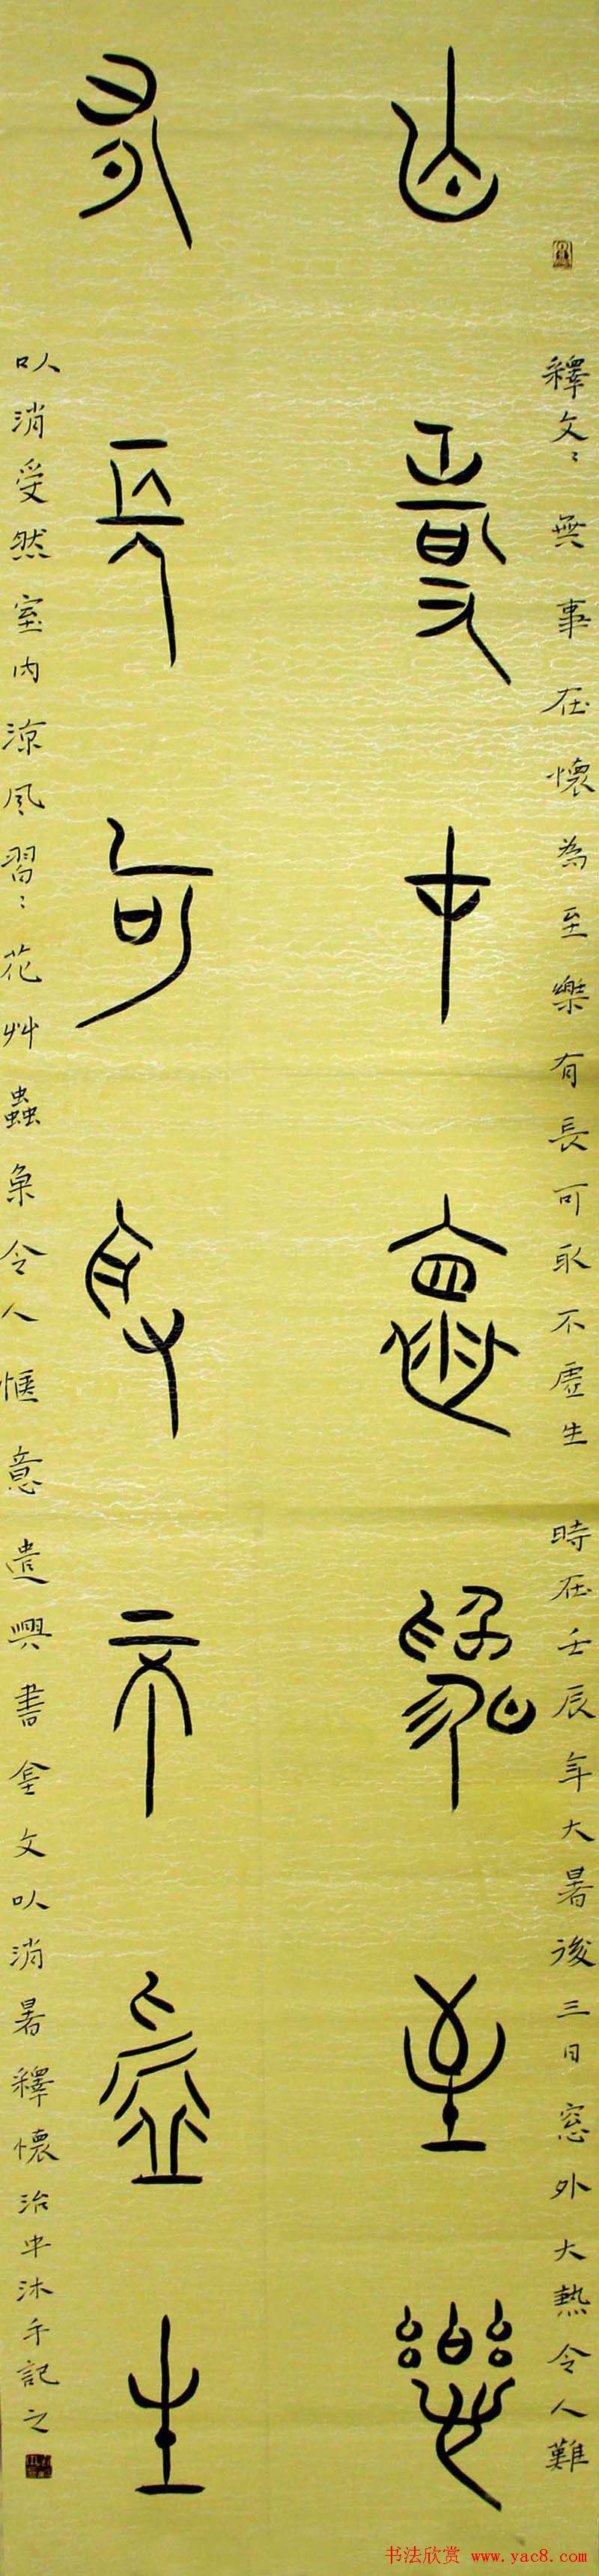 釋文〻無事在懷為至樂有長可取不虛生 時在壬辰年大暑後三日窓外大熱令人難
無事在懷為至樂
有長可取不虛生
以消受然室內涼風習〻花艸蟲魚令人愜意遣興書金文以消暑釋懷治中沐手記之
书法欣赏 www.yac8.com